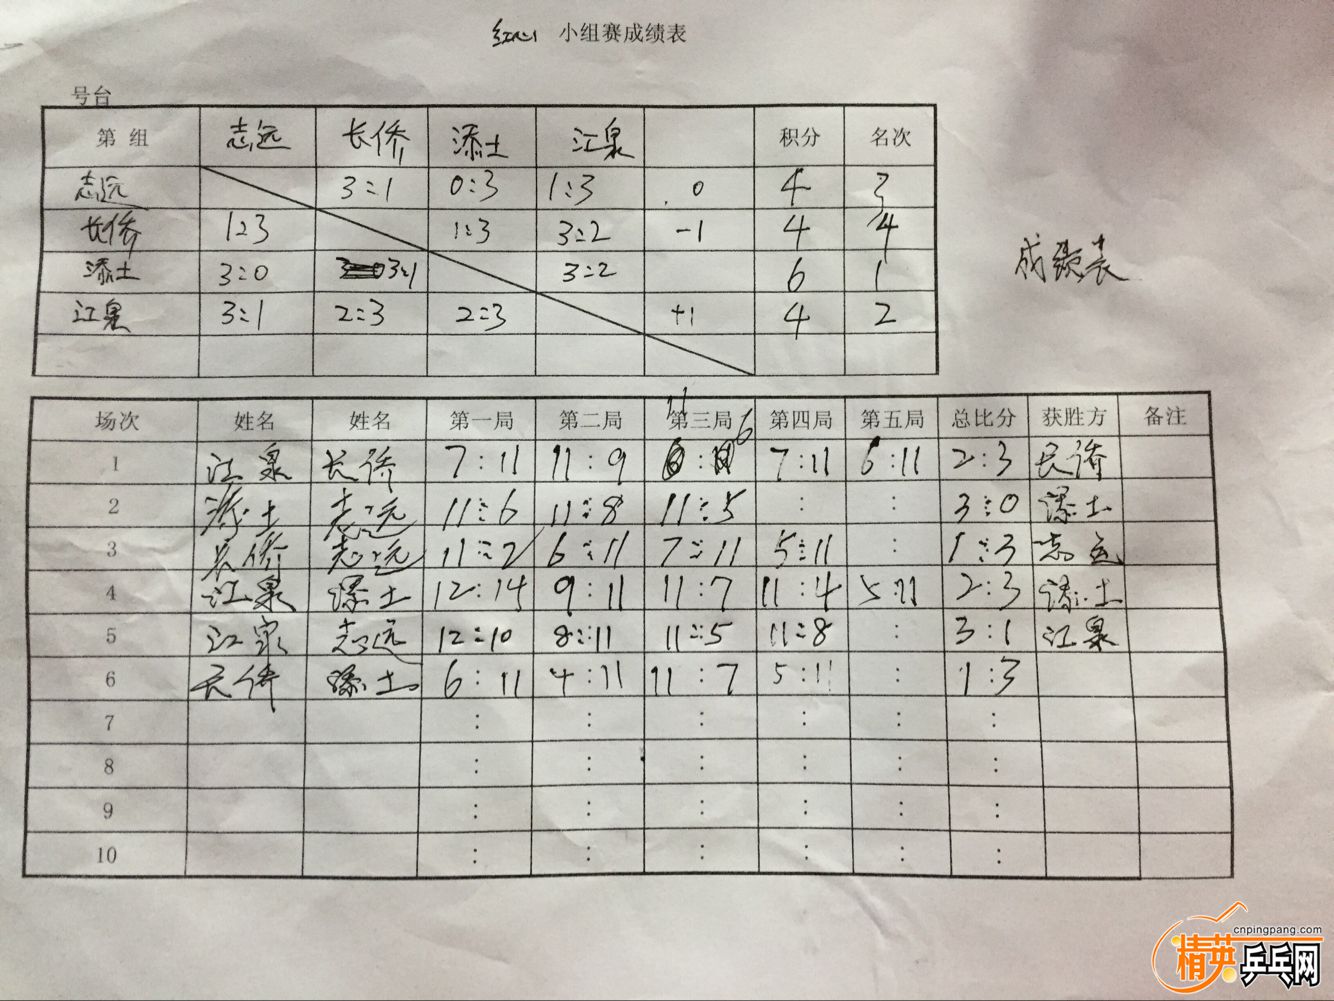 红心 小组赛成绩表
号台
第 组 志远 长侨 添土 江泉 积分 名次
志远 3:1 0:3 1:3 0 4 3
长侨 1:3 1:3 3:2 -1 4 4
添土 3:0 3:1 3:2 6 1
江泉 3:1 2:3 2:3 +1 4 2
成绩表
场次 姓名 姓名 第一局 第二局 第三局 第四局 第五局 总比分 获胜方 备注
1 江泉 长侨 7:11 11:9 11:6 7:11 6:11 2:3 长侨
2 添土 志远 11:6 11:8 11:5 : : 3:0 添土
3 长侨 志远 11:2 6:11 7:11 5:11 : 1:3 志远
4 江泉 添土 12:14 9:11 11:7 11:4 5:11 2:3 添土
5 江泉 志远 12:10 8:11 11:5 11:8 : 3:1 江泉
6 长侨 添土 6:11 4:11 11:7 5:11 : 1:3
7 : : : : : :
8 : : : : : :
9 : : : : : :
10 : : : : : :
cnpingpang.com
精英乒乓网